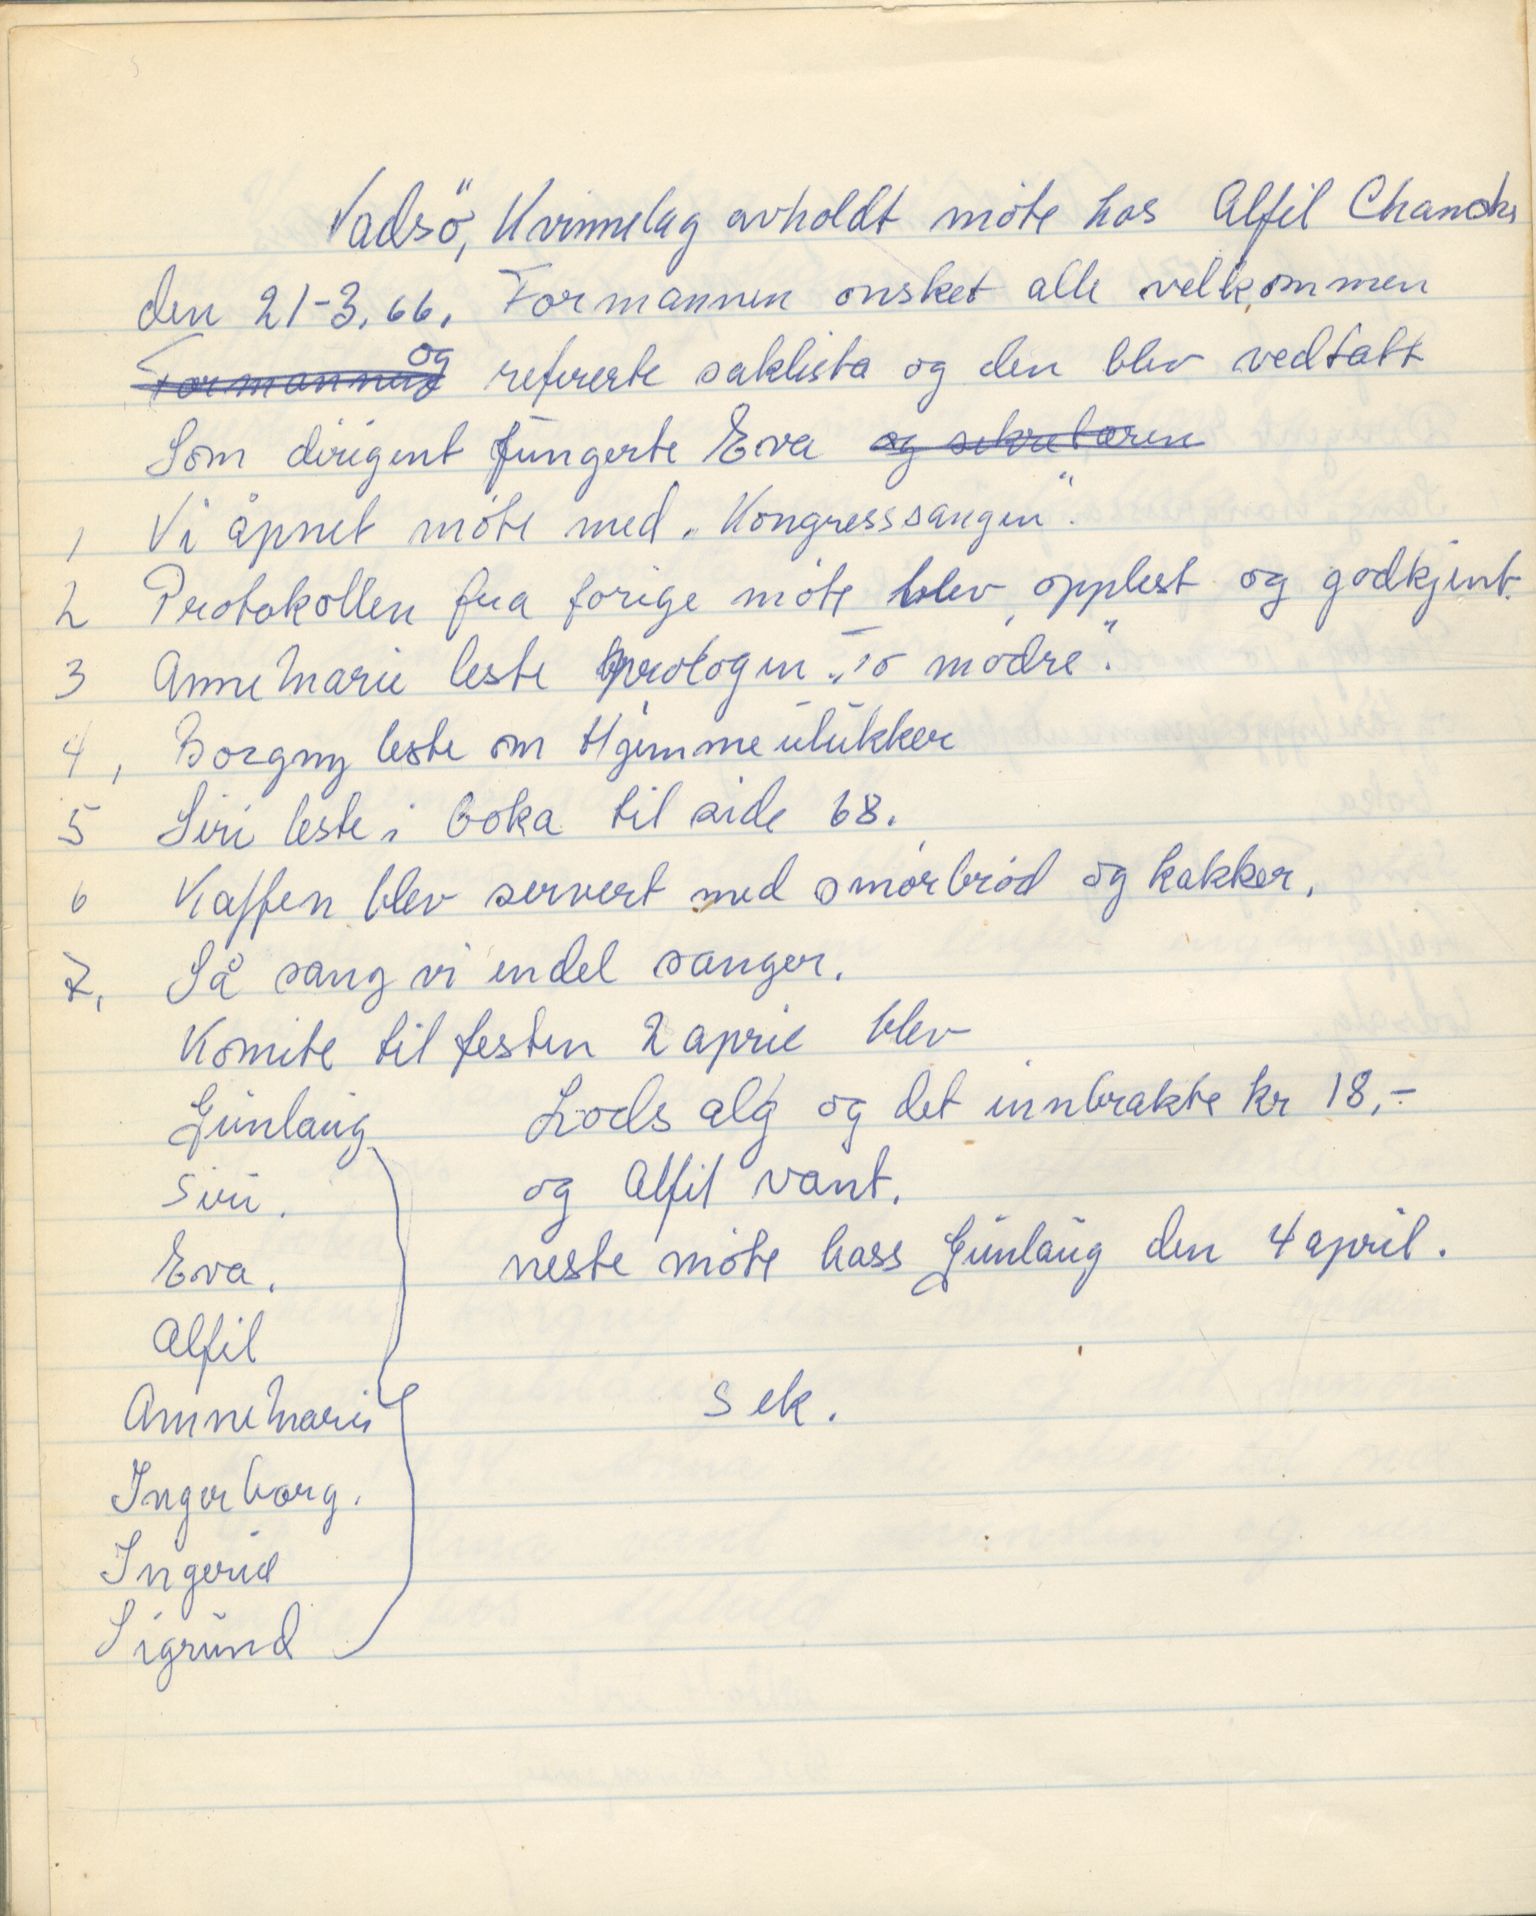 Vadsö, Kvinnelag avholdt möte hos Alfil
den 21-3.66. Formannen onsket alle velkommen
Formannen og refererte saklista og den blev vedtatt
Som dirigent fungerte Eva og sekretæren
1 Vi åpnet möte med „Kongressangen".
2 Protokollen fra forige möte blev opplest og godkjent.
3 Anne Marie leste prologen „To mödre".
4, Borgny leste om Hjemmeulükker
5 Siri leste i boka til side 68.
6 Kaffen blev servert med smörbröd og kakker.
7. Så sang vi endel sanger.
Komite til festen 2 april blev
Günlaüg Lodsalg og det innbrakte kr 18,-
Siri. og Alfil vant.
Eva. neste möte hass Günlaüg den 4 april.
Alfil
Anne Marie Sek.
Ingerborg.
Ingerid
Sigründ